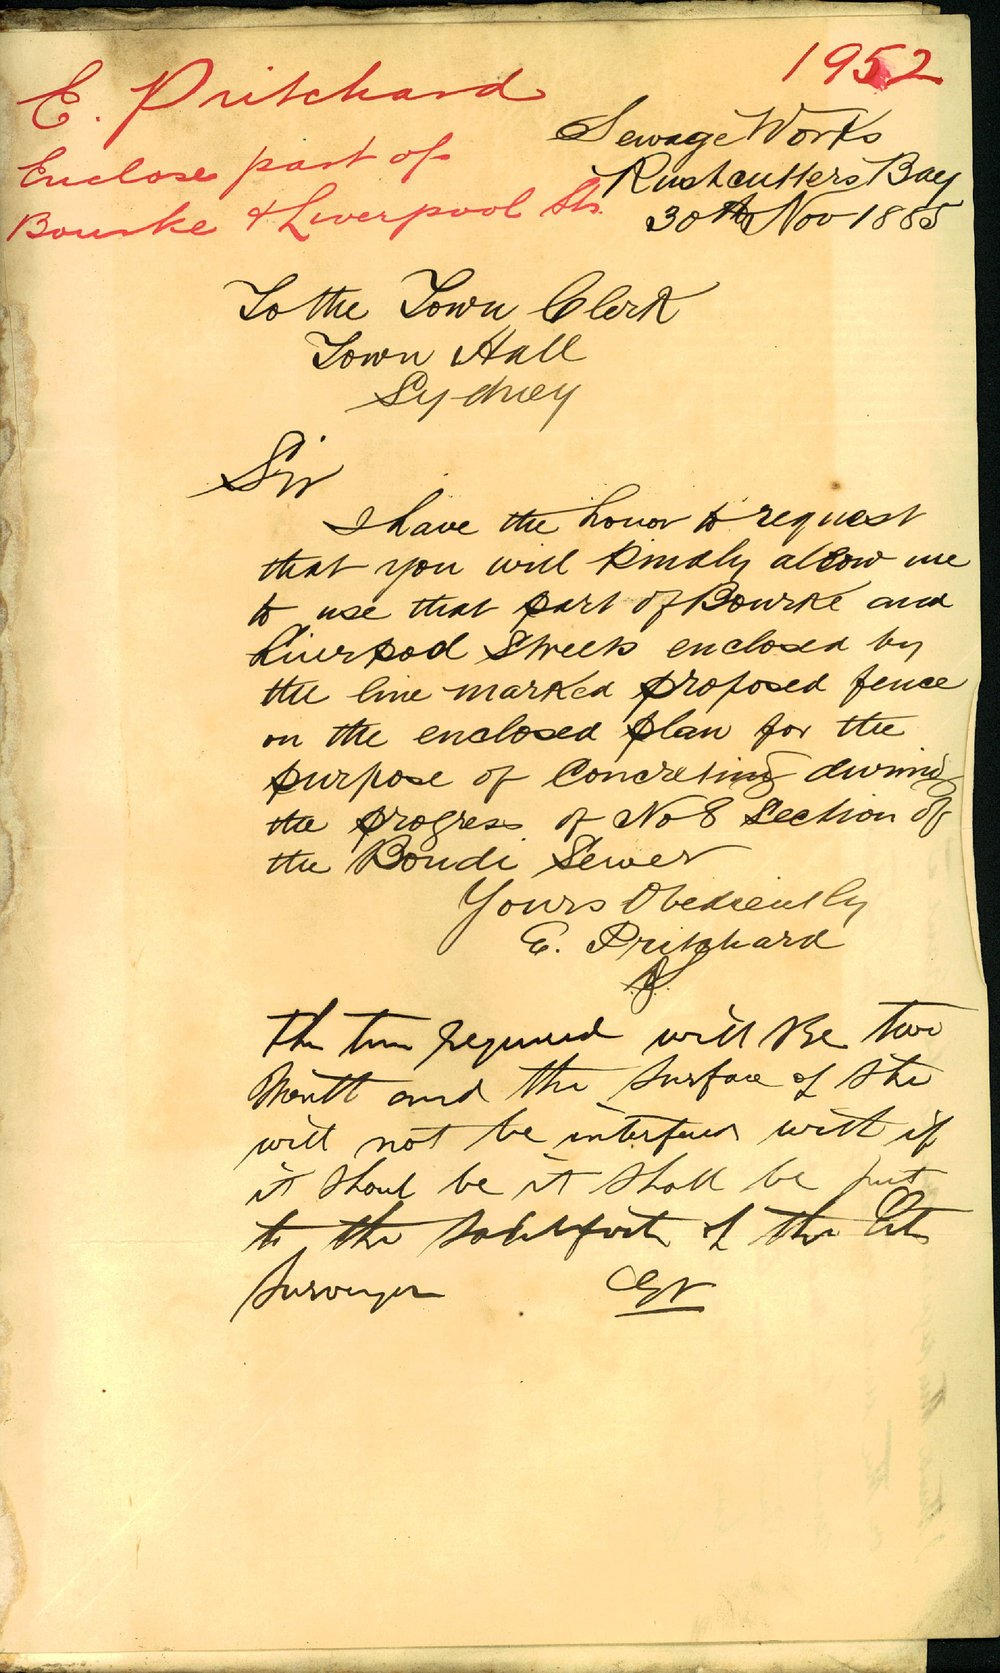 1952
E. Pritchard
Enclose part of
Bourke & Liverpool Sts.
Sewage Works
Rushcutters Bay
30th Nov 1885
To the Town Clerk
Town Hall
Sydney
Sir
I have the honor to request
that you will kindly allow me
to use that part of Bourke and
Liverpool Streets enclosed by
the line marked proposed fence
on the enclosed plan for the
purpose of Concreting during
the progress of No 8 Section of
the Bondi Sewer
Yours Obediently
E. Pritchard
The time required will Be two
Month and the surface of the
will not be interfered with if
it should be it shall be put
to the of the City
Surveyor